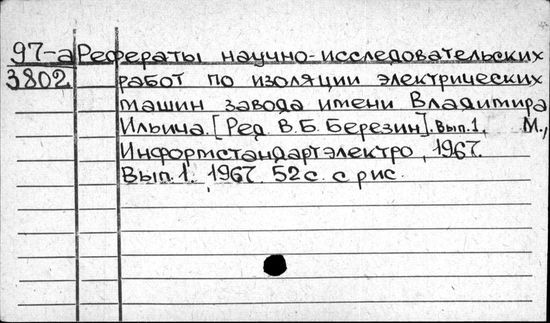 97-а Рефераты научно-исследовательских
3802 работ по изоляции электрических
машин завода имени Владимира
Ильича. [Ред. В.Б. Березин]. Вып.1. М.,
Информстандартэлектро, 1967.
Вып.1. 1967. 52 с. с рис.